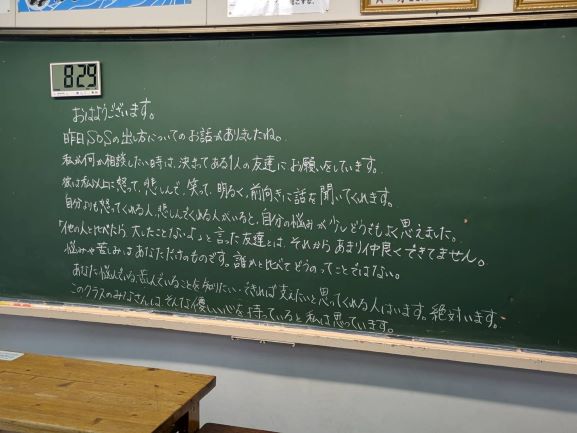 8:29
おはようございます。
昨日SOSの出し方についてのお話がありましたね。
私が何か相談したい時は、決まってある1人の友達にお願いしています。
彼は私以上に怒って、悲しんで、笑って、明るく、前向きに話を聞いてくれます。
自分よりも怒ってくれる人、悲しんでくれる人がいると、自分の悩みが少しどうでもよく思えました。
「他の人と比べたら大したことないよ」と言った友達とは、それからあまり仲良くできてません。
悩みや苦しみはあなただけのものです。誰かと比べてどうのってことではない。
あなたが悩んでいる、苦しんでいることを知りたい・できれば支えたいと思ってくれる人はいます。絶対います。
このクラスのみなさんは、そんな優しい心を持っていると私は思っています。